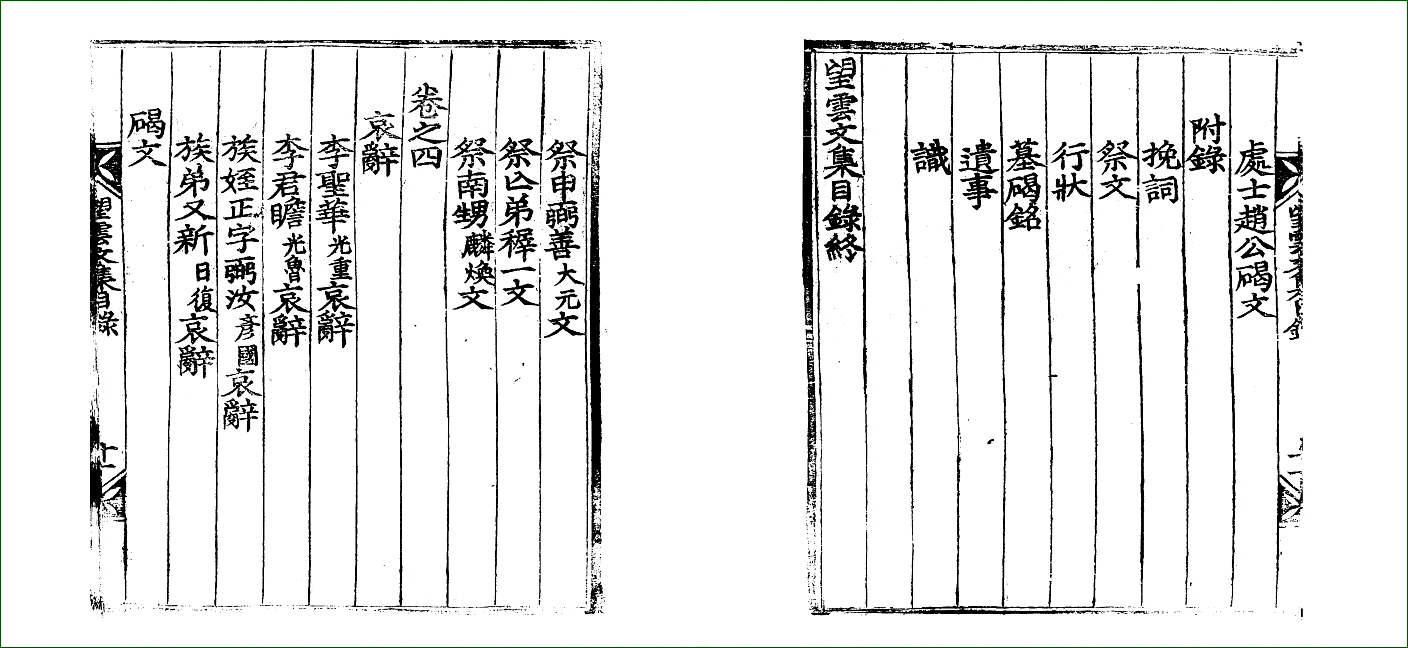 祭申弼善大元文
祭亾弟稺一文
祭南甥麟煥文
卷之四
哀辭
李聖華光重哀辭
李君瞻光魯哀辭
族姪正字弼汝彦國哀辭
族弟又新日復哀辭
碣文
望雲文集目錄
十一
處士趙公碣文
附錄
挽詞
祭文
行狀
墓碣銘
遺事
識
望雲文集目錄終